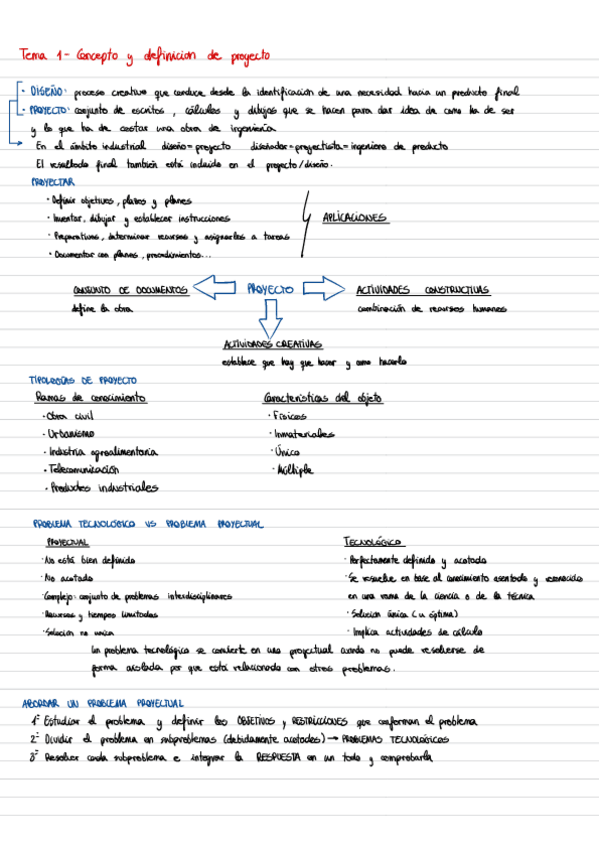 Tema 1 - Concepto y definicion de proyecto
· DISEÑO: proceso creativo que conduce desde la identificacion de una necesidad hacia un producto final
· PROYECTO: conjunto de escritos, cálculos y dibujos que se hacen para dar idea de como ha de ser
y lo que ha de costar una obra de ingeniería
En el ámbito industrial diseño=proyecto diseñador=proyectista=ingeniero de producto
El resultado final también está incluido en el proyecto/diseño.
PROYECTAR
· Definir objetivos, plazos y planes
· Inventar, dibujar y establecer instrucciones
· Preparativos, determinar recursos y asignarlos a tareas
· Documentar con planes, procedimientos...
APLICACIONES
CONJUNTO DE DOCUMENTOS PROYECTO ACTIVIDADES CONSTRUCTIVAS
define la obra combinación de recursos humanos
ACTIVIDADES CREATIVAS
establece que hay que hacer y como hacerlo
TIPOLOGÍAS DE PROYECTO
Ramas de conocimiento Características del objeto
· Obra civil · Físicos
· Urbanismo · Inmateriales
· Industria agroalimentaria · Único
· Telecomunicación · Múltiple
· Productos industriales
PROBLEMA TECNOLÓGICO VS PROBLEMA PROYECTUAL
PROYECTUAL TECNOLÓGICO
· No está bien definido · Perfectamente definido y acotado
· No acotado · Se resuelve en base al conocimiento asentado y reconocido
· Complejo: conjunto de problemas interdisciplinares en una rama de la ciencia o de la técnica
· Recursos y tiempos limitados · Solucion única (u óptima)
· Solucion no unica · Implica actividades de cálculo
Un problema tecnológico se convierte en uno proyectual cuando no puede resolverse de
forma aislada por que está relacionado con otros problemas.
ABORDAR UN PROBLEMA PROYECTUAL
1º Estudiar el problema y definir los OBJETIVOS y RESTRICCIONES que conforman el problema
2º Dividir el problema en subproblemas (debidamente acotados) → PROBLEMAS TECNOLÓGICOS
3º Resolver cada subproblema e integrar la RESPUESTA en un todo y comprobarla